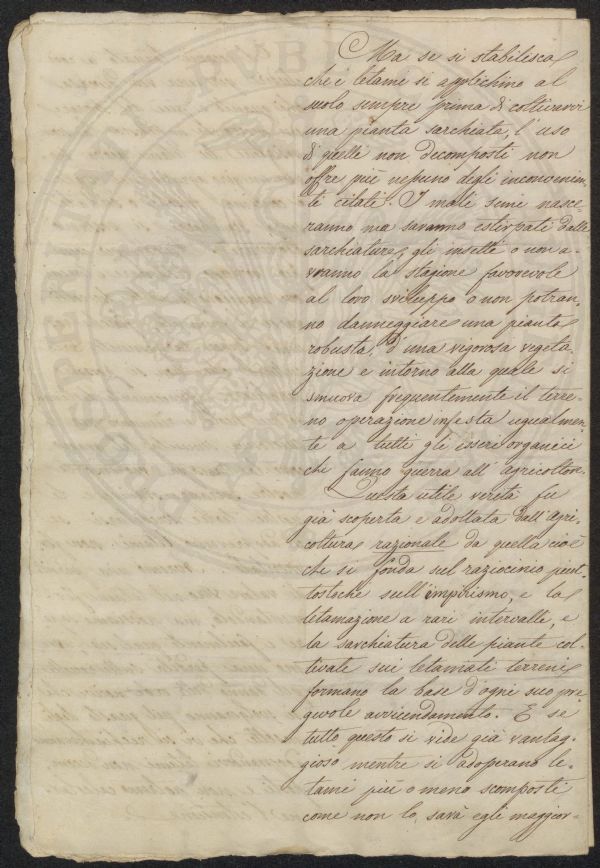 Ma se si stabilisca
che i letami si applichino al
suolo sempre prima di coltivarvi
una pianta sarchiata, l'uso
di quelle non decomposti non
offre più nessuno degli inconvenien-
ti citati. I mali semi nasce-
ranno ma saranno estirpati dalle
sarchiature, gli insetti o non a-
vranno la stagione favorevole
al loro sviluppo o non potran-
no danneggiare una pianta
robusta, d'una vigorosa vegeta-
zione e intorno alla quale si
smuova frequentemente il terre-
no operazione infesta ugualmen-
te a tutti gli esseri organici
che fanno guerra all'agricoltore.
Questa utile verità fu
già scoperta e adottata dall'agri-
coltura razionale da quella cioè
che si fonda sul raziocinio piut-
tostoche sull'empirismo, e la
letamazione a rari intervalli, e
la sarchiatura delle piante col-
tivate sui letamati terreni
formano la base d'ogni suo pre-
gevole avvicendamento. E se
tutto questo si vide già vantag-
gioso mentre si adoperano le-
tami più o meno scomposti
come non lo sarà egli maggior-
PUBLI
POSTERITATI